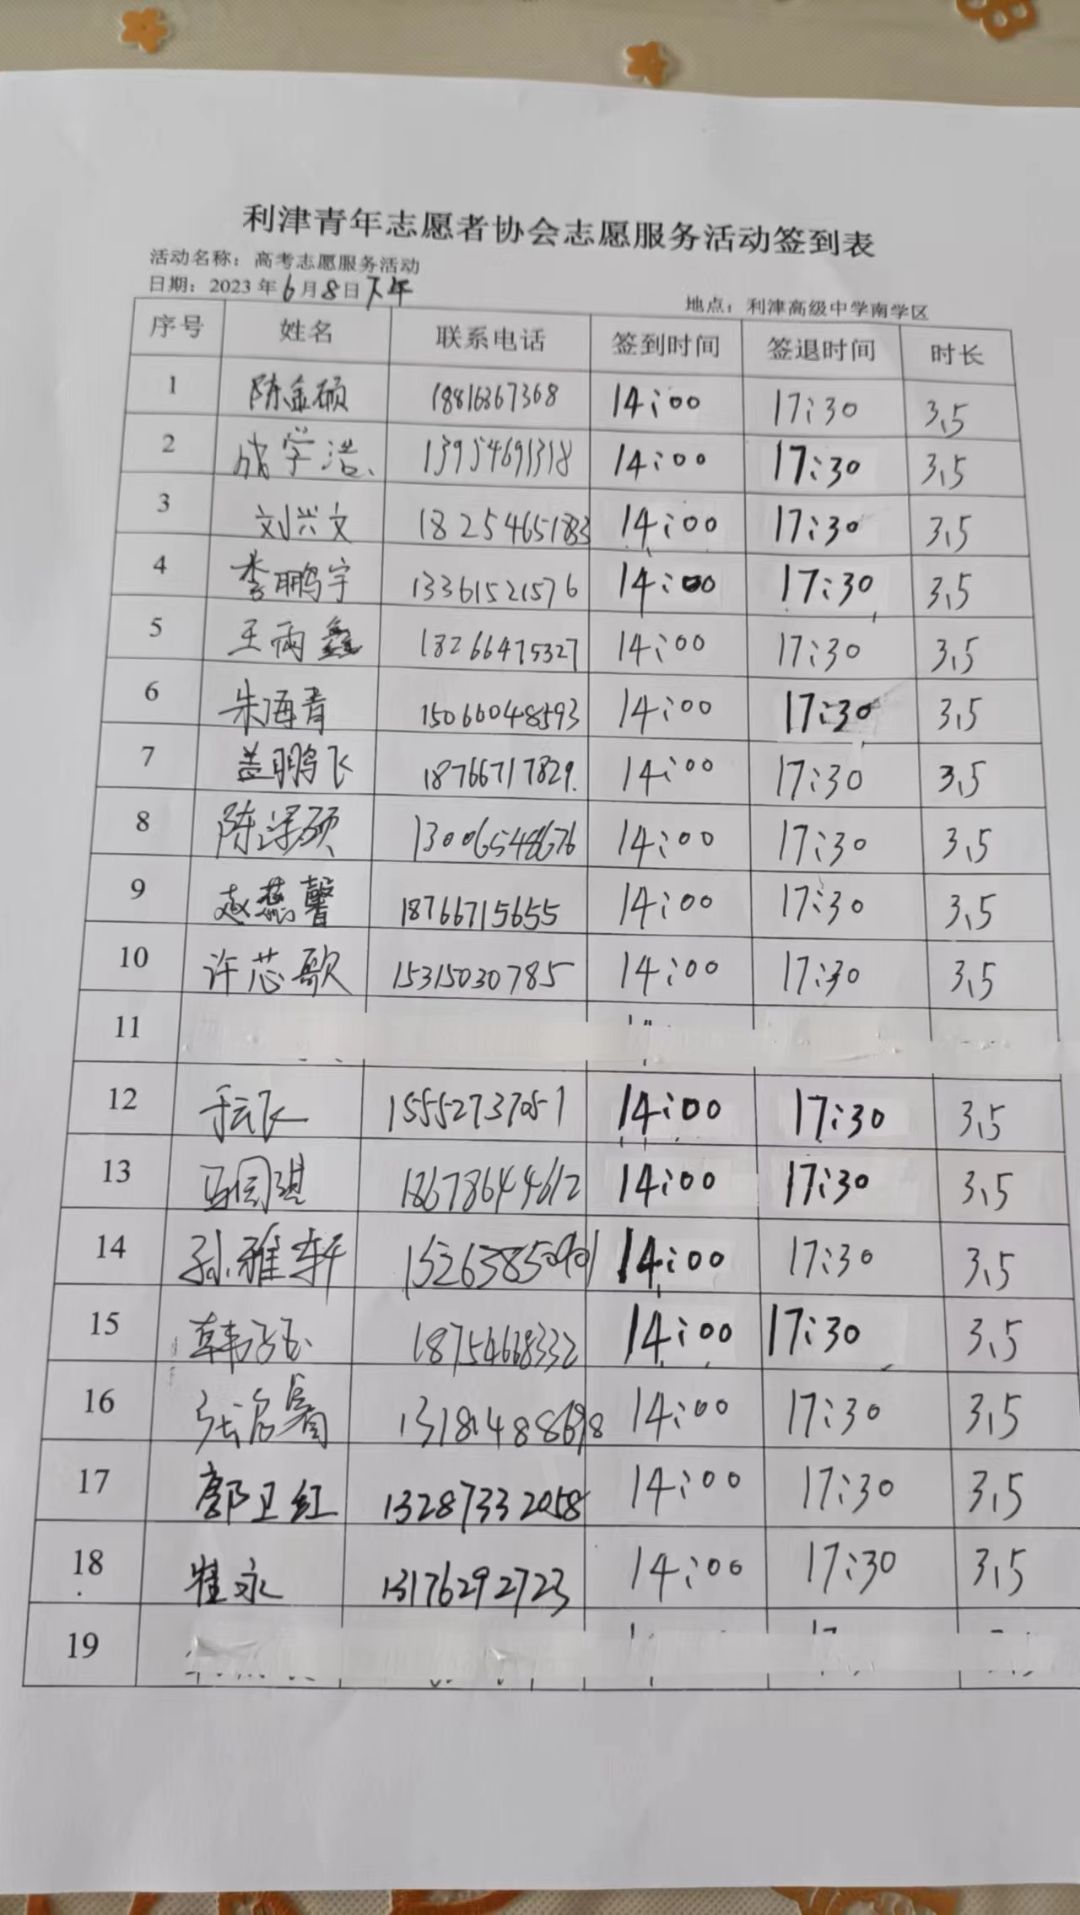 利津青年志愿者协会志愿服务活动签到表
活动名称：高考志愿服务活动
日期：2023年6月8日下午
地点：利津高级中学南学区
序号 姓名 联系电话 签到时间 签退时间 时长
1 陈金硕 18816367368 14:00 17:30 3.5
2 成学浩 13954691318 14:00 17:30 3.5
3 刘兴文 18254651833 14:00 17:30 3.5
4 李鹏宇 13361521576 14:00 17:30 3.5
5 王雨鑫 18266475327 14:00 17:30 3.5
6 朱海青 15066048593 14:00 17:30 3.5
7 盖鹏飞 18766717829. 14:00 17:30 3.5
8 陈泽硕 13006548676 14:00 17:30 3.5
9 赵燕馨 18766715655 14:00 17:30 3.5
10 许芯歌 15315030785 14:00 17:30 3.5
11
12 于云飞 15552737051 14:00 17:30 3.5
13 马国琪 18678644612 14:00 17:30 3.5
14 孙雅轩 15263850901 14:00 17:30 3.5
15 韩 18754668332 14:00 17:30 3.5
16 张 13181488698 14:00 17:30 3.5
17 郭卫红 13287332058 14:00 17:30 3.5
18 崔永 13176292723 14:00 17:30 3.5
19